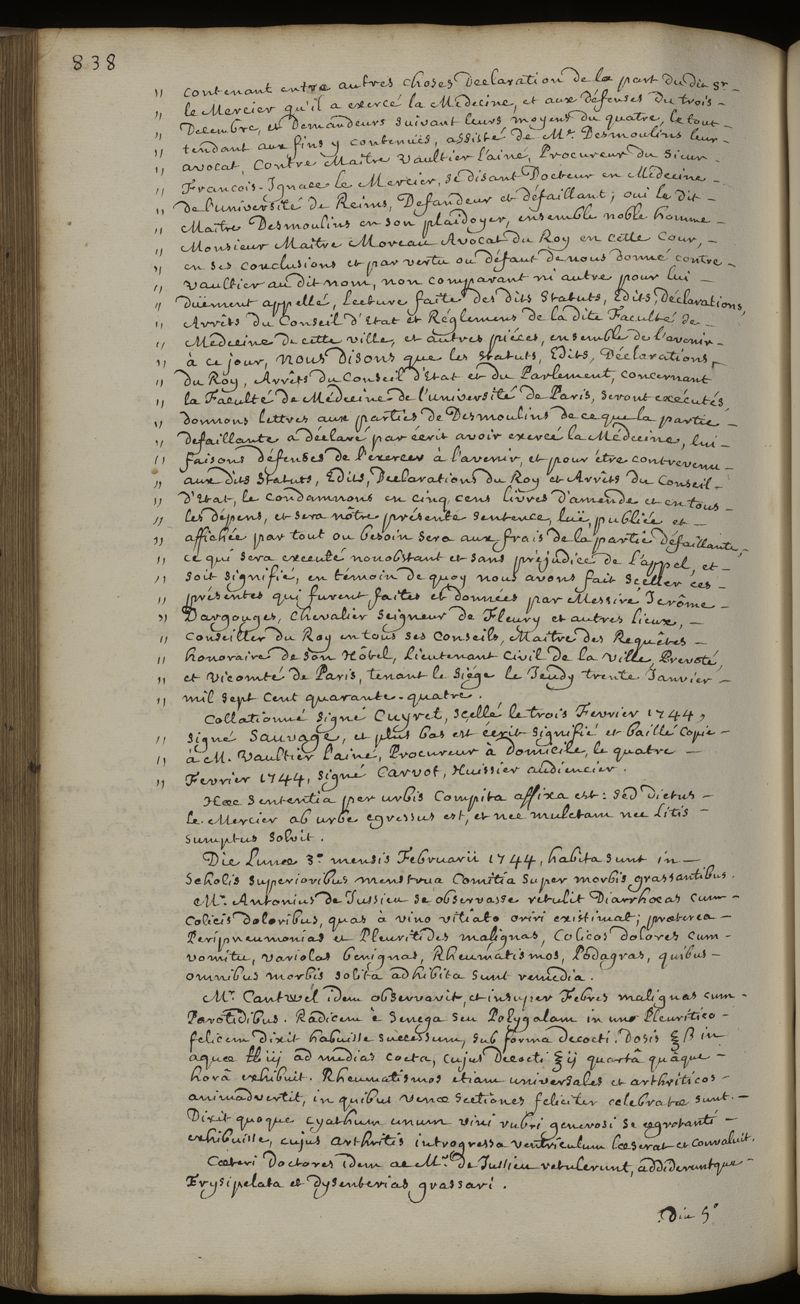 838
" contenant entre autres choses Declaration de la part du dit Sr –
" le Mercier qu'il a exercé la Médecine, et aux défenses du trois –
" Decembre, et Demandeurs suivant leurs moyens du quatre, le tout –
" tendant aux fins y contenües, assisté de Me. Desmoulins leur –
" avocat, Contre Maître Vaultier l'ainé, Procureur du Sieur –
" Francois-Ignace le Mercier, se disant Docteur en Médecine –
" de l'université de Reims, Defandeur et défaillant; oui le dit –
" Maître Desmoulins en son plaidoyer, ensemble noble homme –
" Monsieur Maître Moreau Avocat du Roy en cette Cour, –
" en ses conclusions et par vertu du défaut de nous donné contre –
" Vaultier au dit nom, non comparant ni autre pour lui –
" duëment appellé, Lecture faite des dits Statuts, Edits, Déclarations,
" Arrêts du Conseil d'Etat et Réglemens de la dite Faculté de –
" Médecine de cette ville, et autres piéces, ensemble de l'avenir –
" à ce jour, Nous Disons que les Statuts, Edits, Déclarations, –
" du Roy, Arrêts du Conseil d'Etat et du Parlement, concernant
" la Faculté de Médecine de l'université de Paris, seront exécutés,
" donnons lettres aux parties de Desmoulins de ce que la partie –
" défaillante a déclaré par écrit avoir exercé la Médecine, lui –
" faisons défenses de l'exercer à l'avenir, et pour être contrevenu –
" aux dits Statuts, Edits, Declarations du Roy et Arrêts du Conseil –
" d'Etat, le condamnons en cinq cens livres d'amende et en tous –
" les dépens, et sera nôtre présente sentence, luë, publiée et –
" affichée par tout ou besoin sera aux frais de la partie défaillante,
" ce qui sera executé nonobstant et sans préjudice de l'appel, et –
" soit signifié, en témoin de quoy nous avons fait sceller ces –
" présentes qui furent faites et données par Messire Jerôme –
" Dargouges, Chevalier Seigneur de Fleury et autres lieux, –
" Conseiller du Roy en tous ses Conseils, Maître des Requêtes –
" honoraire de son Hôtel, Lieutenant Civil de la Ville, Prevoté,
" et Vicomté de Paris, tenant le Siége le Jeudy trente Janvier –
" mil sept cent quarante-quatre.
Collationné signé Cuyret, scellé le trois Fevrier 1744,
" signé Sauvage, et plus bas est écrit signifié et baillé copie –
" à M. Vaultier l'ainé, Procureur à domicile, le quatre –
" Fevrier 1744, signé Carvot, Huissier audiencier.
Haec Sententia per urbis Compita affixa est: sed dictus –
le Mercier ab urbe egressus est, et nec mulctam nec litis –
sumptus solvit.
Die Lunae 3a. mensis Februarii 1744, habita sunt in –
Scholis superioribus menstrua Comitia super morbis grassantibus.
Mr. Antonius de Jussieu se observasse retulit Diarrhoeas cum –
Colicis doloribus, quas à vino vitiato oriri existimat; praeterea –
Peripneumonias et Pleuritides malignas, Colicos dolores cum –
vomitu, variolas benignas, Rheumatismos, Podagras, quibus –
omnibus morbis solita adhibita sunt remedia.
Mr. Cantwel idem observavit, et insuper Febres malignas cum –
Parotidibus. Radicem è Senega seu Polygalam in uno Pleuritico –
felicem dixit habuisse successum, sub forma decocti. Dosis ℥ß in
aquae ℔iij ad medias cocta, cujus Decocti ℥ij quartâ quâque –
horâ exhibuit. Rheumatismos etiam universales et arthriticos –
animadvertit, in quibus venae sectiones feliciter celebratae sunt. –
Dixit quoque cyathum unum vini rubri generosi se aegrotanti –
exhibuisse, cujus arthritis introgressa ventriculum laeserat et convaluit.
Caeteri Doctores idem ac Mr. de Jussieu retulerunt, addideruntque –
Erysipelata et dysenterias grassari.
Die 5a